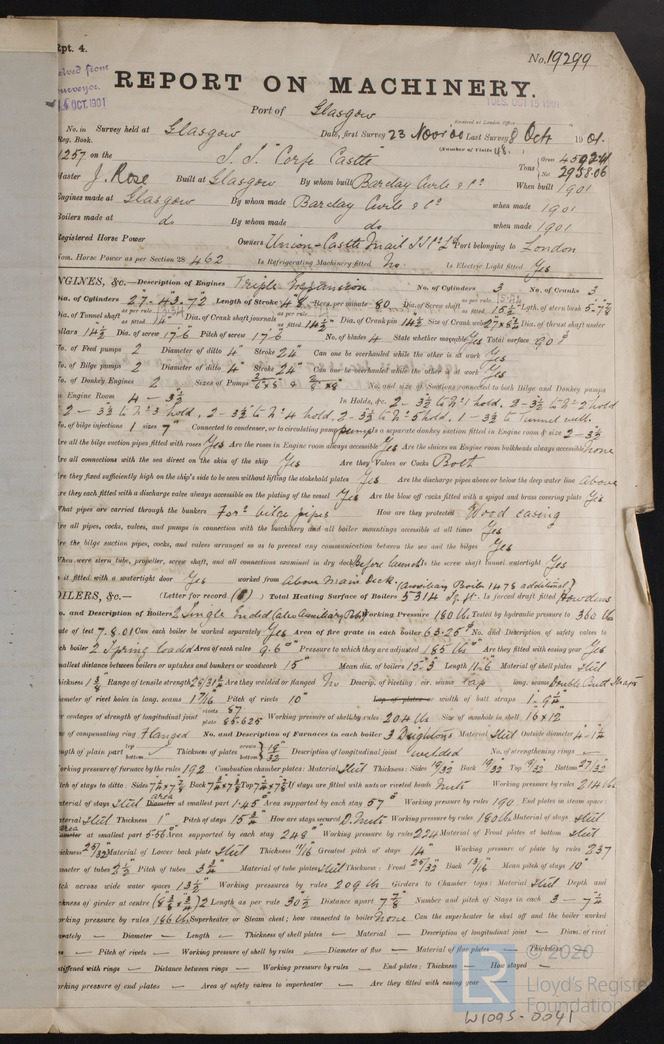 Rpt. 4.
No. 19299
REPORT ON MACHINERY.
TUES. OCT 15 1901
OCT. 1901
Port of Glasgow
Received at London Office
No. in Survey held at Glasgow Date, first Survey 23 Novr 00 Last Survey 8 Oct 1901.
Reg. Book. (Number of Visits 48.)
1257 on the S.S. "Corfe Castle" Tons
Master J. Rose Built at Glasgow By whom built Barclay Curle & Co When built 1901
Engines made at Glasgow By whom made Barclay Curle & Co when made 1901
Boilers made at do By whom made do when made 1901
Registered Horse Power Owners Union-Castle Mail SS Co Ld Port belonging to London
Nom. Horse Power as per Section 28 462 Is Refrigerating Machinery fitted No Is Electric Light fitted Yes
ENGINES, &c.—Description of Engines Triple Expansion No. of Cylinders 3 No. of Cranks 3
Dia. of Cylinders 27-43-72 Length of Stroke 48 Revs. per minute 80 Dia. of Screw shaft Lgth. of stern bush
Dia. of Tunnel shaft Dia. of Crank shaft journals Dia. of Crank pin 14½ Size of Crank webs Dia. of thrust shaft under
collars 14½ Dia. of screw 17-6 Pitch of screw 17-6 No. of blades 4 State whether moveable Yes Total surface 90
No. of Feed pumps 2 Diameter of ditto 4" Stroke 24" Can one be overhauled while the other is at work Yes
No. of Bilge pumps 2 Diameter of ditto 4" Stroke 24" Can one be overhauled while the other is at work Yes
No. of Donkey Engines 2 Sizes of Pumps No. and size of Suctions connected to both Bilge and Donkey pumps
In Engine Room 4 - 3½ In Holds, &c. 2-3½ to No 1 hold, 2-3½ to No 2 hold
2-3½ to No 3 hold, 2-3½ to No 4 hold, 2-3½ to No 5 hold, 1-3½ to Tunnel well
No. of bilge injections 1 sizes 7" Connected to condenser, or to circulating pump pump Is a separate donkey suction fitted in Engine room & size 2-3½
Are all the bilge suction pipes fitted with roses Yes Are the roses in Engine room always accessible Yes Are the sluices on Engine room bulkheads always accessible none
Are all connections with the sea direct on the skin of the ship Yes Are they Valves or Cocks Both
Are they fixed sufficiently high on the ship's side to be seen without lifting the stokehold plates Yes Are the discharge pipes above or below the deep water line above
Are they each fitted with a discharge valve always accessible on the plating of the vessel Yes Are the blow off cocks fitted with a spigot and brass covering plate Yes
What pipes are carried through the bunkers Ford bilge pipes How are they protected Wood casing
Are all pipes, cocks, valves, and pumps in connection with the machinery and all boiler mountings accessible at all times Yes
Are the bilge suction pipes, cocks, and valves arranged so as to prevent any communication between the sea and the bilges Yes
When were stern tube, propeller, screw shaft, and all connections examined in dry dock Before launch Is the screw shaft tunnel watertight Yes
Is it fitted with a watertight door Yes worked from above Main Deck. (Auxiliary Boiler 1478 additional)
BOILERS, &c.— (Letter for record (S)) Total Heating Surface of Boilers 5314 sq. ft. Is forced draft fitted Howdens
No. and Description of Boilers 2 Single Ended (also Auxiliary Boiler) Working Pressure 180 lbs Tested by hydraulic pressure to 360 lbs
Date of test 7.8.01 Can each boiler be worked separately Yes Area of fire grate in each boiler 63.25 No. and Description of safety valves to
each boiler 2 Spring loaded Area of each valve 9.6" Pressure to which they are adjusted 185 lbs Are they fitted with easing gear Yes
Smallest distance between boilers or uptakes and bunkers or woodwork 15" Mean dia. of boilers 15-3 Length 11-6 Material of shell plates steel
Thickness Range of tensile strength Are they welded or flanged No Descrip. of riveting: cir. seams Lap long. seams Double Butt Straps
Diameter of rivet holes in long. seams 1 7/16 Pitch of rivets 10" Lap of plates or width of butt straps 1-9¼
Per centages of strength of longitudinal joint rivets 87 plate 85.625 Working pressure of shell by rules 204 lbs Size of manhole in shell 16×12
Size of compensating ring Flanged No. and Description of Furnaces in each boiler 3 Deightons Material Steel Outside diameter 4-1¼
Length of plain part top bottom Thickness of plates crown bottom Description of longitudinal joint welded No. of strengthening rings —
Working pressure of furnace by the rules 192 Combustion chamber plates: Material Steel Thickness: Sides 19/32 Back 19/32 Top 19/32 Bottom 27/32
Pitch of stays to ditto: Sides Back Top If stays are fitted with nuts or riveted heads Nuts Working pressure by rules 214 lbs
Material of stays Steel area Diameter at smallest part 1.45 Area supported by each stay 57" Working pressure by rules 190 End plates in steam space:
Material Steel Thickness 1" Pitch of stays How are stays secured D. Nuts Working pressure by rules 180 lbs Material of stays Steel
area Diameter at smallest part 5.56 Area supported by each stay 248" Working pressure by rules 224 Material of Front plates at bottom steel
Thickness 25/32 Material of Lower back plate Steel Thickness 11/16 Greatest pitch of stays 14" Working pressure of plate by rules 237
Diameter of tubes 2½ Pitch of tubes Material of tube plates Steel Thickness: Front 25/32 Back 13/16 Mean pitch of stays 10"
Pitch across wide water spaces 13½ Working pressures by rules 209 lbs Girders to Chamber tops: Material Steel Depth and
thickness of girder at centre Length as per rule 30½ Distance apart 7⅞ Number and pitch of Stays in each 3 - 7¾
Working pressure by rules 186 lbs Superheater or Steam chest; how connected to boiler None Can the superheater be shut off and the boiler worked
separately — Diameter — Length — Thickness of shell plates — Material — Description of longitudinal joint — Diam. of rivet
holes — Pitch of rivets — Working pressure of shell by rules — Diameter of flue — Material of flue plates — Thickness —
If stiffened with rings — Distance between rings — Working pressure by rules — End plates: Thickness — How stayed —
Working pressure of end plates — Area of safety valves to superheater — Are they fitted with easing gear —
© 2020
LR
Lloyd's Register
Foundation
W1095-0041